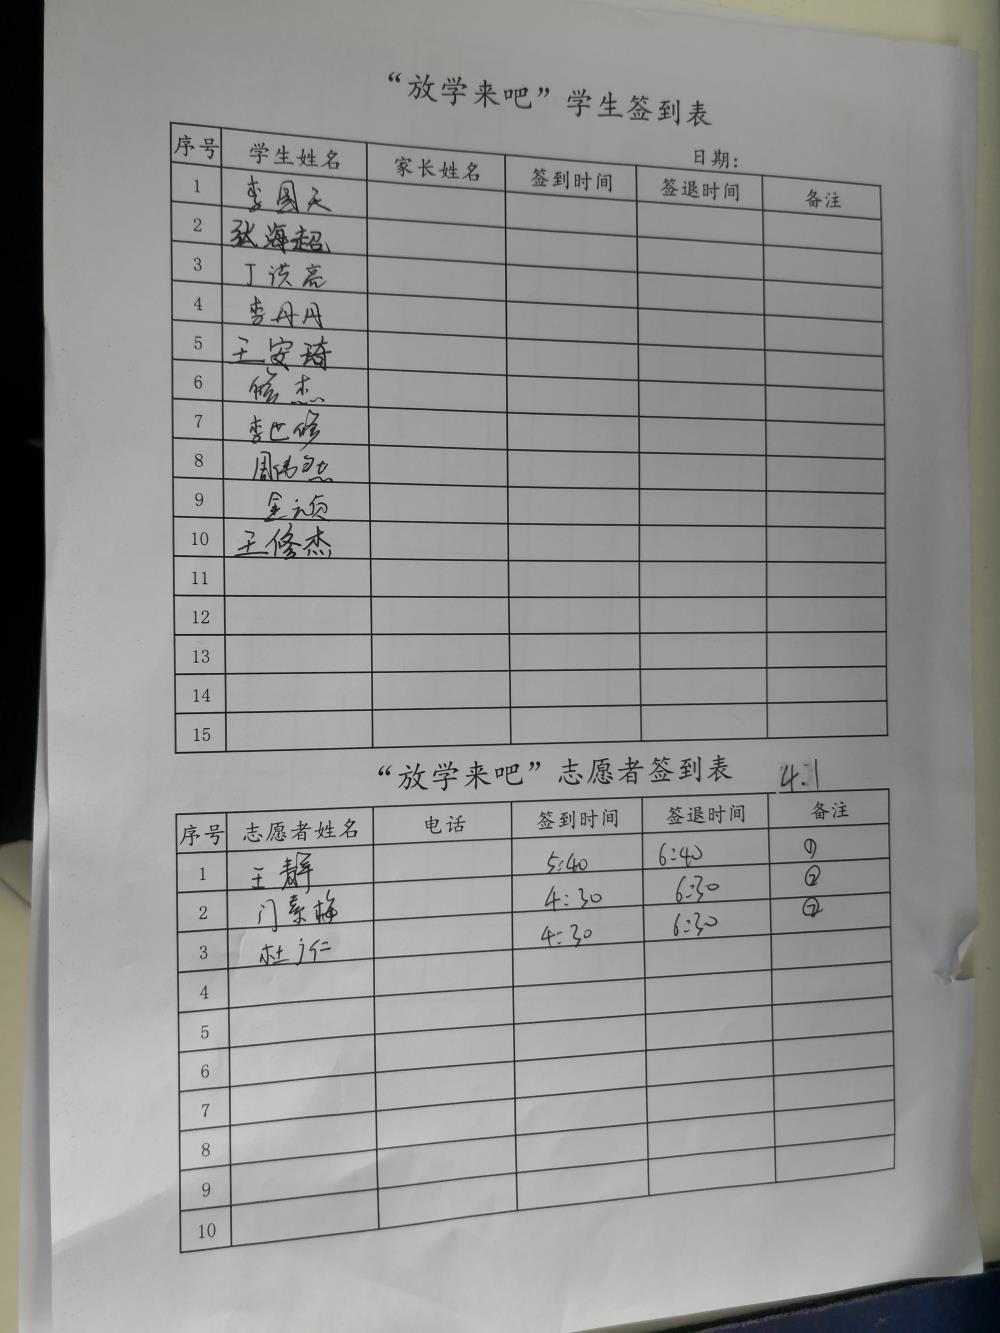 “放学来吧”学生签到表
日期：
序号 学生姓名 家长姓名 签到时间 签退时间 备注
1 李图天
2 张海超
3 丁洪亮
4 李丹丹
5 王安琦
6 杰
7 李世修
8 周伟杰
9
10 王修杰
11
12
13
14
15
“放学来吧”志愿者签到表 4.1
序号 志愿者姓名 电话 签到时间 签退时间 备注
1 王静 5:40 6:40 ①
2 门素梅 4:30 6:30 ②
3 杜广仁 4:30 6:30 ②
4
5
6
7
8
9
10